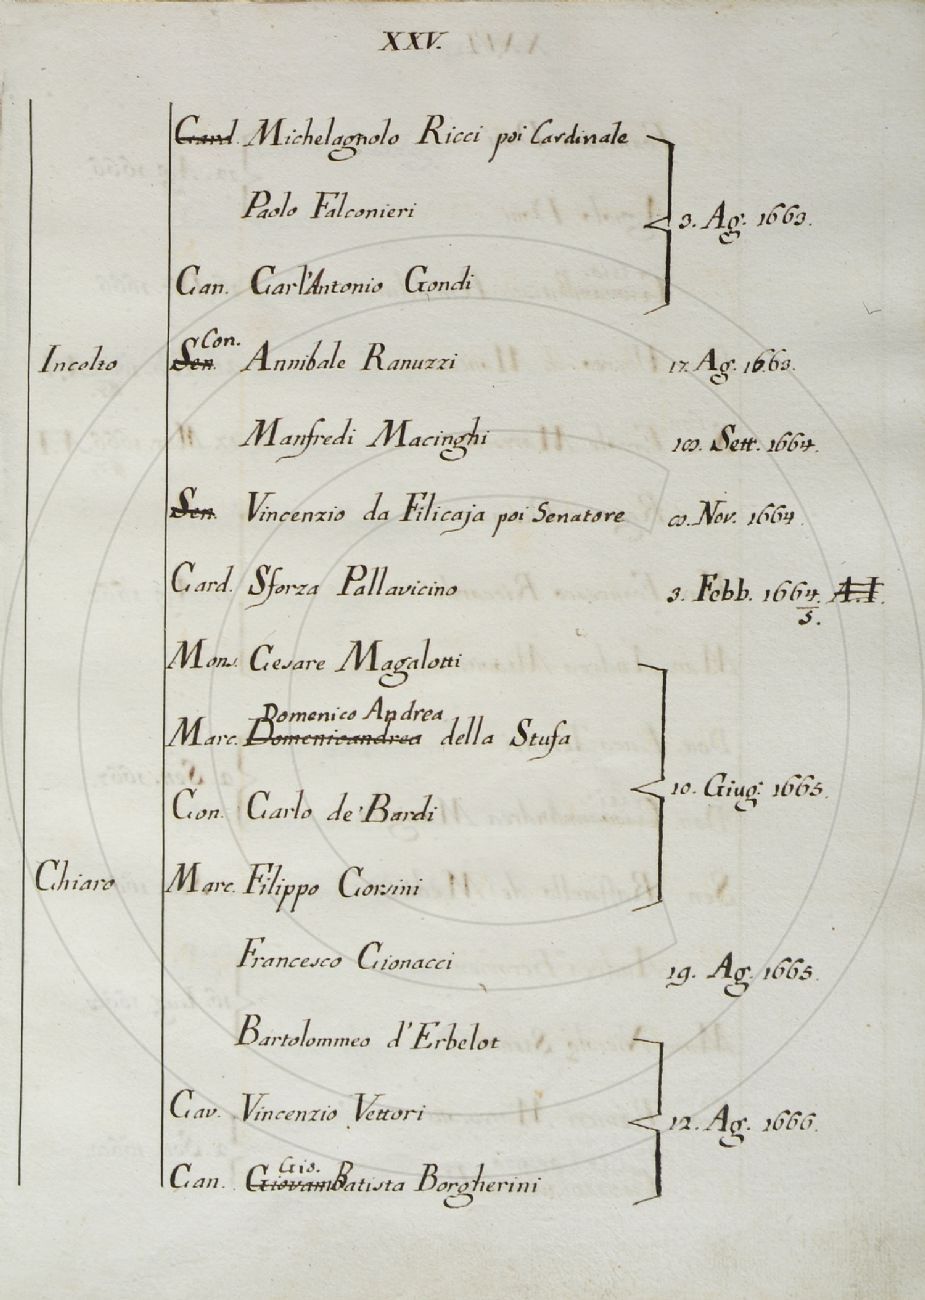 XXV.
Card. Michelagnolo Ricci poi Cardinale
Paolo Falconieri
3. Ag. 1663.
Can. Carl'Antonio Gondi
Incolto Sen. Con. Annibale Ranuzzi 17. Ag. 1663.
Manfredi Macinghi 18. Sett. 1664.
Sen. Vincenzio da Filicaja poi Senatore 8. Nov. 1664.
Card. Sforza Pallavicino 3. Febb. 1664. A.I.
5.
Mons. Cesare Magalotti
Domenico Andrea
Marc. Domenicandrea della Stufa
10. Giug. 1665.
Con. Carlo de' Bardi
Chiaro Marc. Filippo Corsini
Francesco Cionacci 19. Ag. 1665.
Bartolommeo d'Erbelot
Cav. Vincenzio Vettori 12. Ag. 1666.
Gio.
Can. GiovamBatista Borgherini